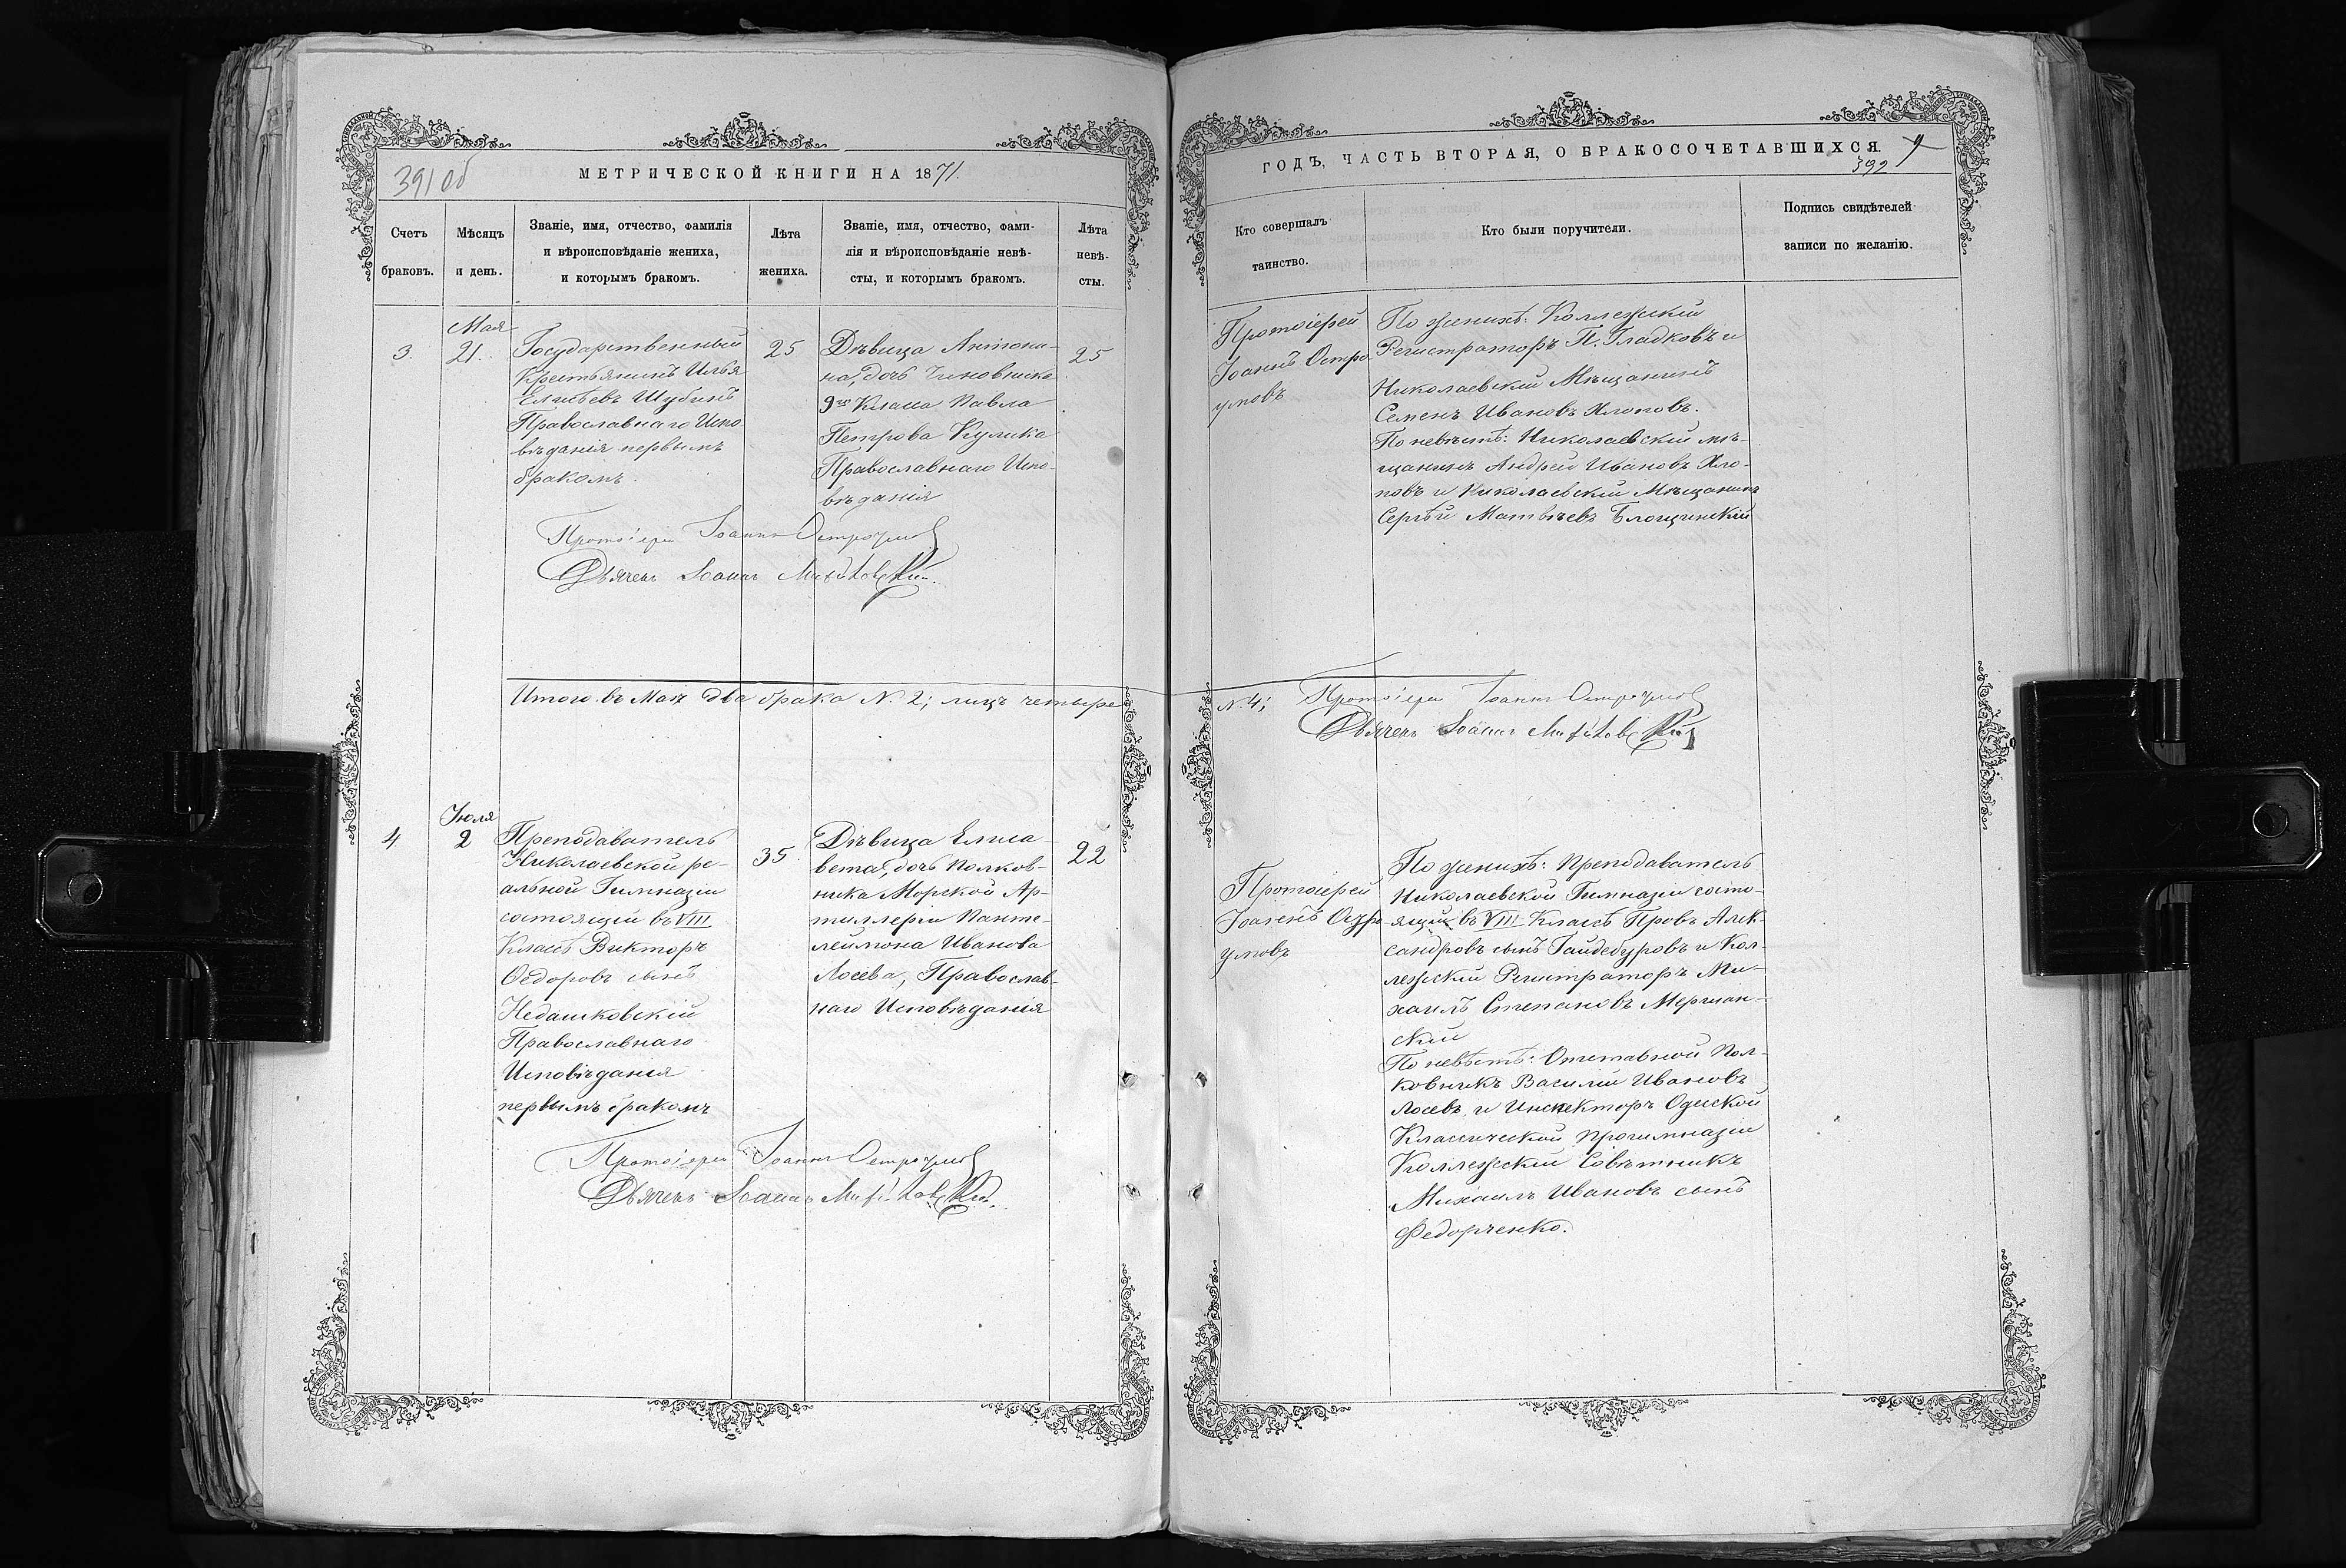 391 об
МЕТРИЧЕСКОЙ КНИГИ НА 1871.
Счетъ
браковъ.
Мѣсяцъ
и день.
Званіе, имя, отчество, фамилія
и вѣроисповѣданіе жениха,
и которымъ бракомъ.
Лѣта
жениха.
Званіе, имя, отчество, фами-
лія и вѣроисповѣданіе невѣ-
сты, и которымъ бракомъ.
Лѣта
невѣ-
сты.
3.
Мая
21.
Государственный
Крестьянинъ Илья
Елисѣевъ Шубинъ
Православнаго Испо
вѣданія первымъ
бракомъ.
25
Дѣвица Антони-
на, дочь Чиновника
9го Класса Павла
Петрова Кулика
Православнаго Испо-
вѣданія
25
Протоіерей Іоаннъ Остроумов
Дьячекъ Іоаннъ
Итого въ Маѣ два брака N. 2; лицъ четыре
4
Іюля
2
Преподаватель
Николаевской ре-
альной Гимназіи
состоящій въ VIII
Классѣ Викторъ
Ѳедоровъ сынъ
Недашковскій
Православнаго
Исповѣданія
первымъ бракомъ
35
Дѣвица Елиса-
вета, дочь Полков-
ника Морской Ар-
тиллеріи Панте-
леймона Иванова
Лосева, Православ-
наго Исповѣданія
22
Протоіерей Іоаннъ Остроумов
Дьячекъ Іоаннъ
ГОДЪ, ЧАСТЬ ВТОРАЯ, О БРАКОСОЧЕТАВШИХСЯ.
392
Кто совершалъ
таинство.
Кто были поручители.
Подпись свидѣтелей
записи по желанію.
Протоіерей
Іоаннъ Остро
умовъ
По женихѣ: Коллежскій
Регистраторъ П. Гладковъ и
Николаевскій Мѣщанинъ
Семенъ Ивановъ Хлоповъ.
По невѣстѣ: Николаевскій мѣ-
щанинъ Андрей Ивановъ Хло-
повъ и Николаевскій Мѣщанинъ
Сергѣй Матвѣевъ Блощинскій
N. 4;
Протоіерей Іоаннъ Остроумов
Дьячекъ Іоаннъ
Протоіерей
Іоаннъ Остро
умовъ
По женихѣ: Преподаватель
Николаевской Гимназіи состо-
ящій въ VIII Классѣ Провъ Алек-
сандровъ сынъ Гайдебуровъ и Кол-
лежскій Регистраторъ Ми-
хаилъ Степановъ Мержан-
скій
По невѣстѣ: Отставной Пол-
ковникъ Василій Ивановъ
Лосевъ и Инспекторъ Одесской
Классической прогимназіи
Коллежскій Совѣтникъ
Михаилъ Ивановъ сынъ
Федорченко.